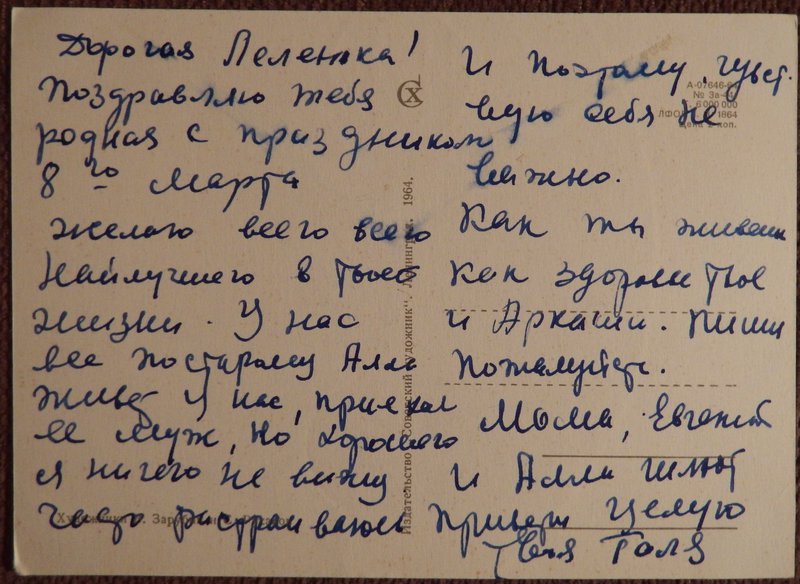 Дорогая Леленька!
Поздравляю тебя
родная с праздником
8 го марта
желаю всего всего
найлучшего в твоей
жизни. У нас
все постарому Алла
живет у нас, приехал
ее муж, но хорошего
я ничего не вижу
часто растраиваюсь
И поэтому чувст-
вую себя не
важно.
Как ты живеш
как здоровье твое
и Аркаши. Пиши
пожалуйста.
Мама, Евгений
и Алла шлют
привет Целую
твоя Галя
СХ
А-07646-64
6 000 000
1864
коп.
Издательство „Советский художник“. Ленинград. 1964.
Художник